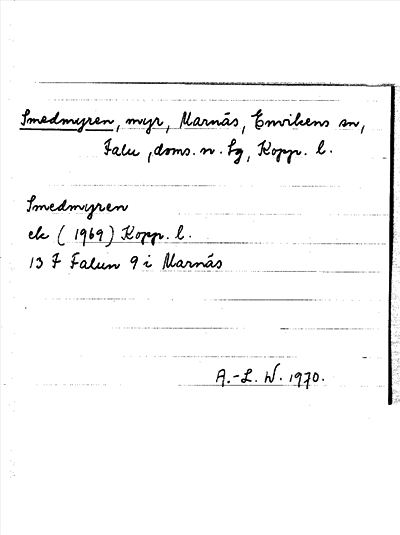 Smedmyren, myr, Marnäs, Envikens sn,
Falu, doms. n. tg, Kopp. l.
Smedmyren
ek (1969) Kopp. l.
13 F Falun 9 i Marnäs
A.-L. W. 1970.